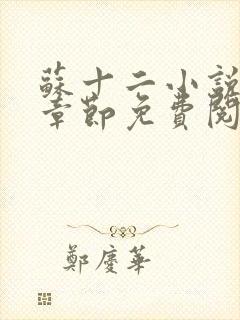 蘇十二小說
章節免費閱
鄭慶華